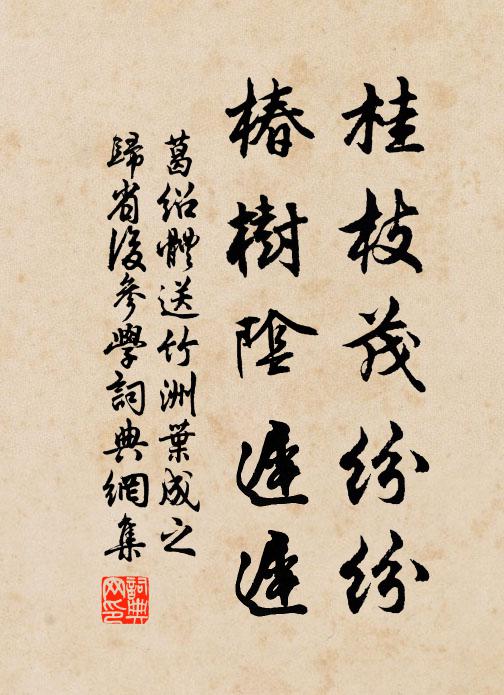 桂枝茂纷纷
椿樹陰遲遲
葛绍體送竹洲葉成之
歸省後參學詞典網集
詞典网印